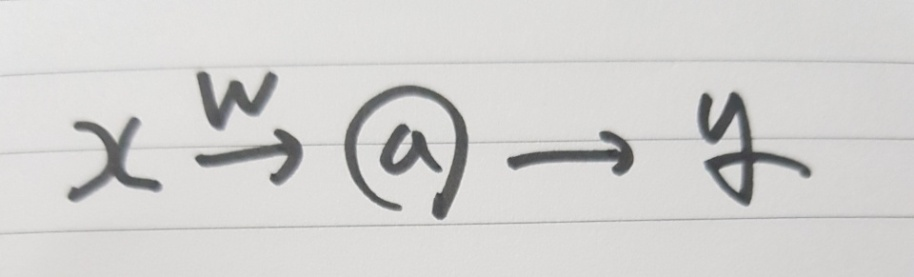 x W→ ⓐ → y